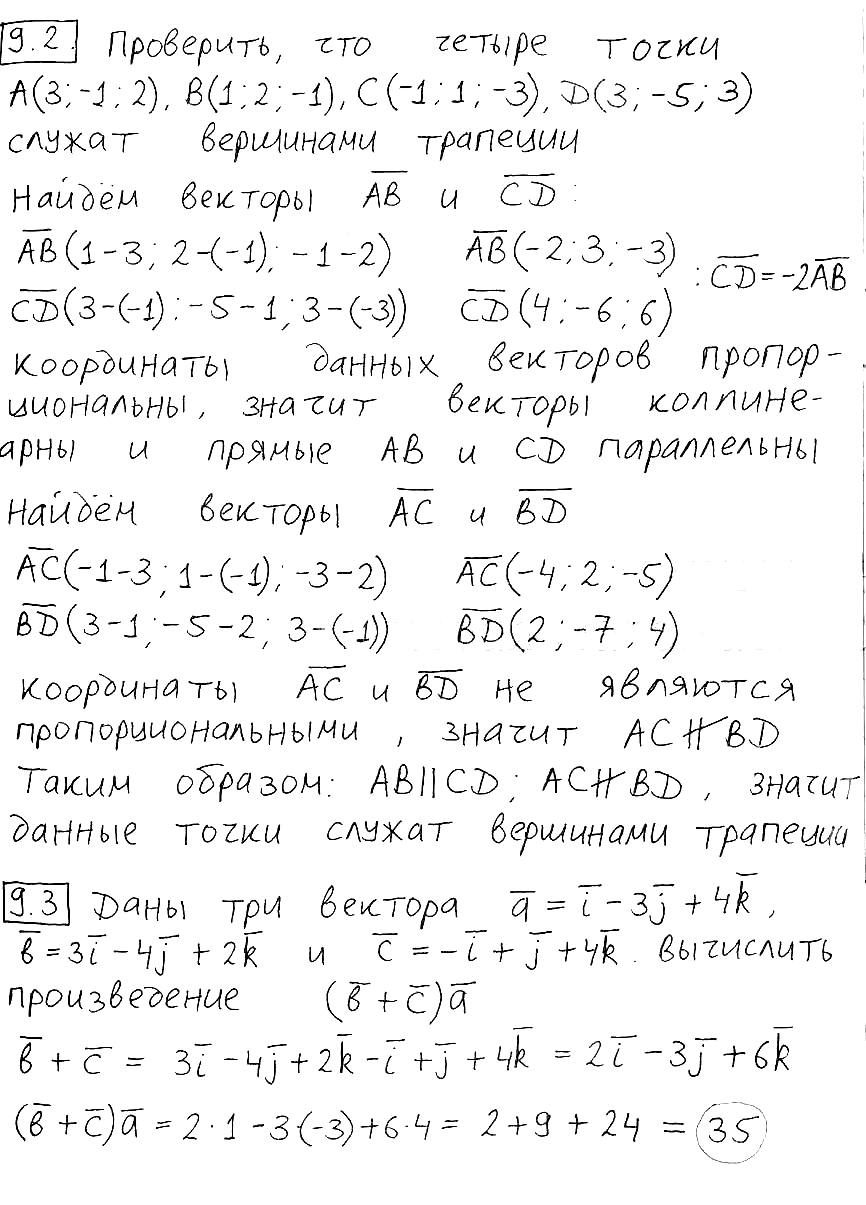 9.2 Проверить, что четыре точки
A(3;-1;2), B(1;2;-1), C(-1;1;-3), D(3;-5;3)
служат вершинами трапеции
Найдём векторы A̅B̅ и C̅D̅:
A̅B̅(1-3; 2-(-1); -1-2) A̅B̅(-2;3;-3)
: C̅D̅=-2A̅B̅
C̅D̅(3-(-1); -5-1; 3-(-3)) C̅D̅(4;-6;6)
Координаты данных векторов пропор-
циональны, значит векторы коллине-
арны и прямые AB и CD параллельны
Найдём векторы A̅C̅ и B̅D̅
A̅C̅(-1-3; 1-(-1); -3-2) A̅C̅(-4;2;-5)
B̅D̅(3-1;-5-2; 3-(-1)) B̅D̅(2;-7;4)
Координаты A̅C̅ и B̅D̅ не являются
пропорциональными, значит AC∦BD
Таким образом: AB||CD; AC∦BD, значит
данные точки служат вершинами трапеции
9.3 Даны три вектора a̅ = i̅ - 3j̅ + 4k̅,
b̅=3i̅-4j̅+2k̅ и c̅=-i̅+j̅+4k̅. вычислить
произведение (b̅+c̅)a̅
b̅+c̅ = 3i̅-4j̅+2k̅-i̅+j̅+4k̅ = 2i̅-3j̅+6k̅
(b̅+c̅)a̅ = 2·1-3(-3)+6·4 = 2+9+24 = 35